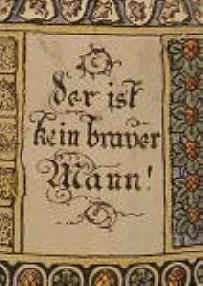 der ist
kein braver
Mann!